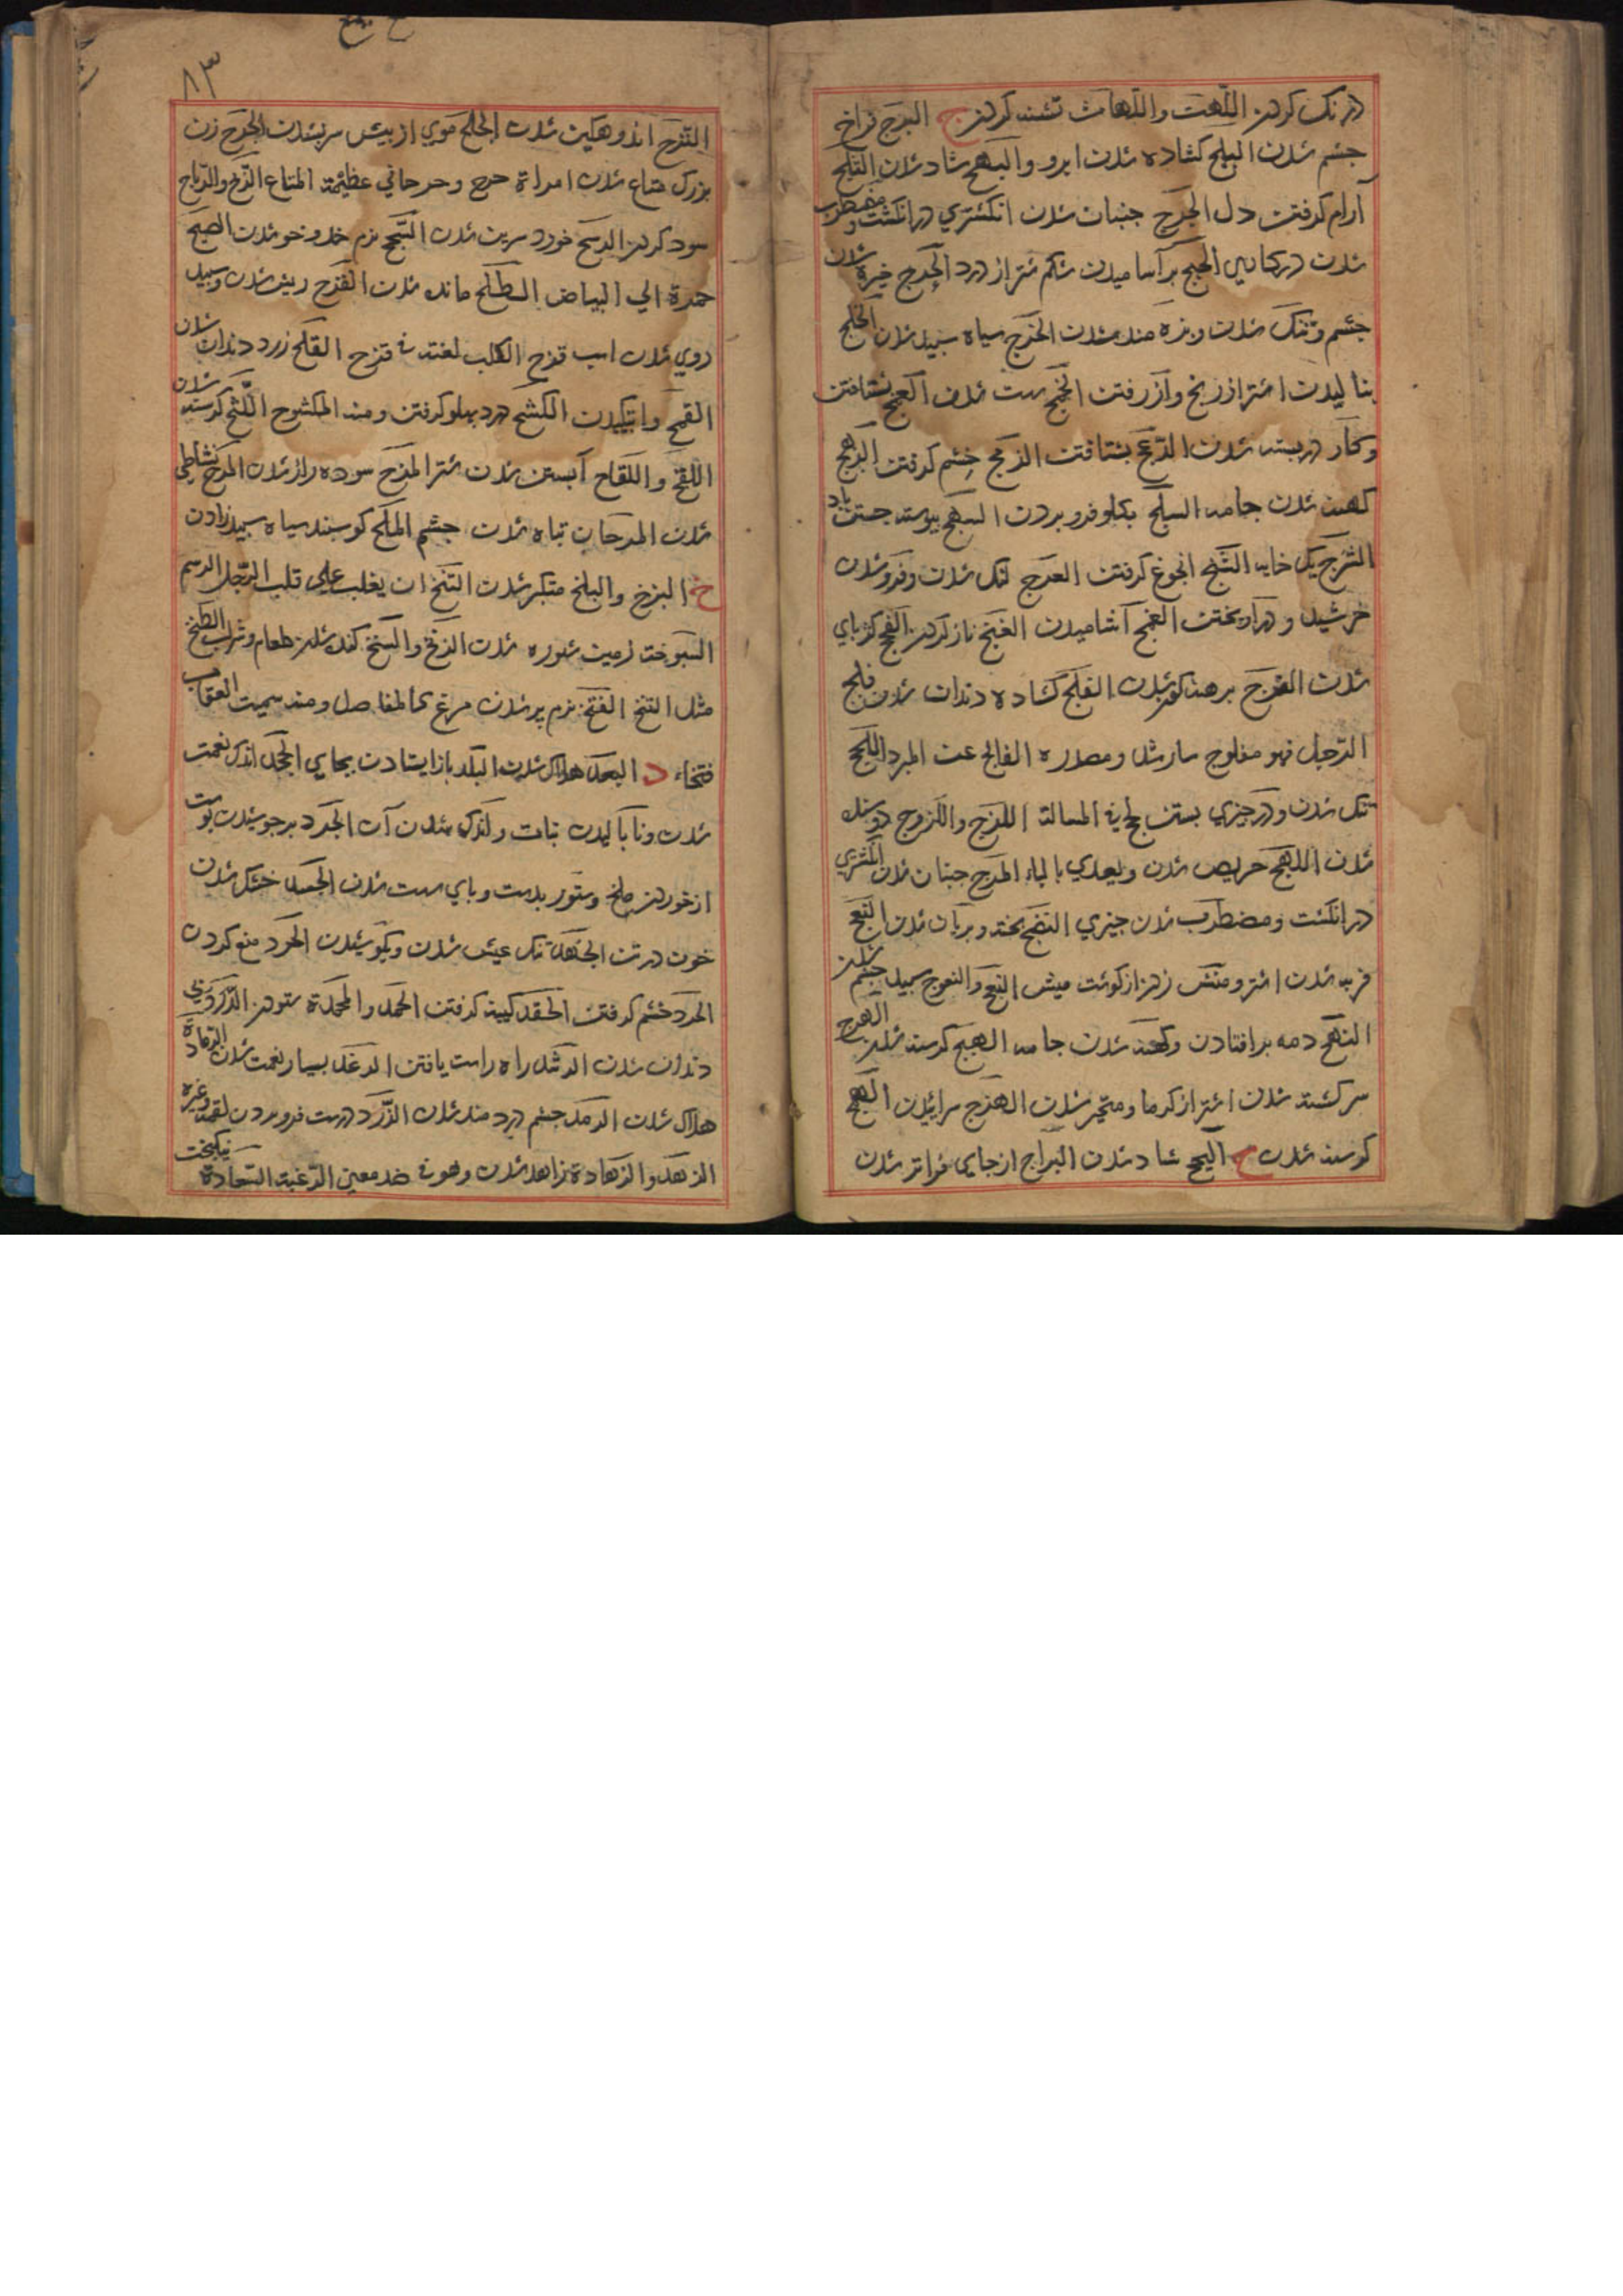 درنك كردن اللهث واللهاث تشنه كردن ج البرج فراخ
چشم شدن البلج كشاده شدن ابرو والبهج شاد شدن الثلج
آرام كرفتن دل الجرج جنبان شدن انكشتري در انكشت ومضطرب
شدن در كاري الحبج بر آماسيدن شكم شتر از درد الحدج خيره شدن
چشم وتنك شدن وبزه مند شدن الخرج سياه سپيد شدن الخلج
بناليدن اشتر از رنج وآز رفتن الخمج سست شدن
وكار در بسته شدن الدعج بشتافتن الزمج خشم كرفتن الرهج
كهنه شدن جامه السلج بكلو فرو بردن السهج پيوسته جستن باد
الشرج يك خايه الشنج انجوغ كرفتن العرج لنك شدن وفرو شدن
خرشيد ودر آويختن الغمج آشاميدن الغنج ناز كردن الفحج كژ پاي
شدن الفرج برهنه شدن الفلج كشاده دندان شدن فلج
الرجل فهو مفلوج سار شل ومصدره الفالج عن المبرد اللحج
تنك شدن ودر چيزي بستن اللزج واللزوج دوسنده
شدن اللهج حريص شدن ويعدي بالباء المرج جنبان شدن انكشتري
در انكشت ومضطرب شدن چيزي النضج پخته وبريان شدن النعج
فربه شدن اشتر ومنش زدن از كوشت ميش النعج والنعوج سپيد چشم شدن
النهج دمه بر افتادن وكهنه شدن جامه الهبج كرسنه شدن الهرج
سر كشته شدن اشتر از كرما ومتحير شدن الهزج سراييدن الهمج
كرسنه شدن ح البجح شاد شدن البراح از جاي فراتر شدن
٨٣
الترح اندوهكين شدن الجلح موي از پيش سر بشدن الحرح زن
بزرك متاع شدن امراة حرح وحرحاني عظيمة المتاع الربح والرباح
سود كردن الرسح خورد سرين شدن السجح نرم خد وخو شدن الصبح
حمرة الي البياض الطلح مانده شدن القرح ريش شدن وسپيد
روي شدن اسب قزح الكلب لغة في قزح القلح زرد دندان شدن
القمح واپيچيدن الكشح درد پهلو كرفتن ومنه المكشوح اللتح كرسنه شدن
اللقح واللقاح آبستن شدن شتر المذح سوده ران شدن المرح بنشاطي
شدن المرحان تباه شدن چشم الملح كوسپند سياه سپيد زادن
خ البزخ والبلخ متكبر شدن التنخ ان يغلب علي قلب الرجل الدسم
السبوخة زمين شوره شدن الزنخ والسنخ كنده شدن طعام وشراب الطنخ
مثل التنخ الفتخ نرم پر شدن مرغ كالمفاصل ومنه سميت العقاب
فتخاء د البعد هلاك شدن البلد باز ايستادن بجاي الجحد اندك نعمت
شدن ونا باليدن نبات واندك شدن آن الجرد برجوشيدن پوست
از خوردن ملخ وستور بدست وپاي سست شدن الجسد خشك شدن
خون در تن الجهد تنك عيش شدن وبكوشيدن الحرد منع كردن
الحرد خشم كرفتن الحقد كينه كرفتن الحمد والمحمدة ستودن الدرد بي
دندان شدن الرشد راه راست يافتن الرغد بسيار نعمت شدن الرمادة
هلاك شدن الرمد چشم درد مند شدن الزرد درست فرو بردن لقمه وغيره
الزهد والزهادة زاهد شدن وهو في ضد معني الرغبة السعادة نيكبخت